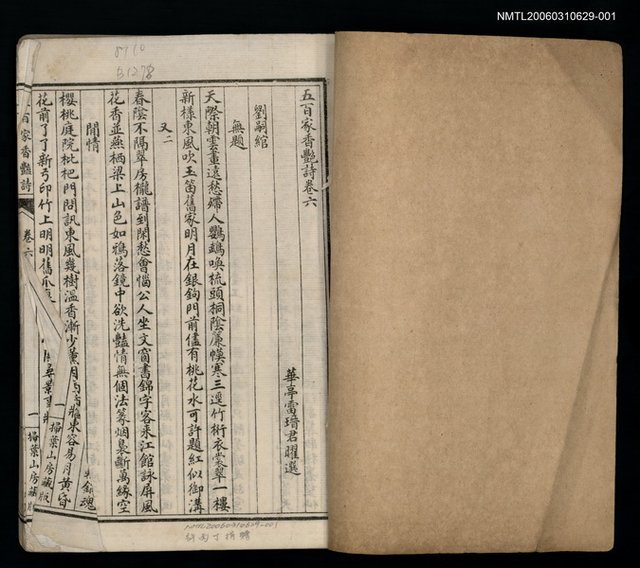 NMTL20060310629-001
8710
B1278
五百家香艷詩卷六
華亭雷瑨君曜選
劉嗣綰
無題
天際朝雲畫遠愁婦人鸚鵡喚梳頭桐陰簾幙寒三逕竹術衣裳翠一樓
新樣東風吹玉笛舊家明月在銀鉤門前儘有桃花水可許題紅似御溝
又二
春陰不隔翠房櫳譜到閑愁會惱公人坐文窗書錦字客來江館詠屏風
花香並燕栖梁上山色如鴉落鏡中欲洗艷情無個法篆烟裊斷萬緣空
閒情
櫻桃庭院枇杷門問訊東風幾樹溫香漸少薰月
容易月黃昏
花前了了新弓印竹上明明舊爪
魂
百家香艷詩
卷六
一
掃葉山房藏版
一
掃葉山房藏版
NMTL20060310629-001